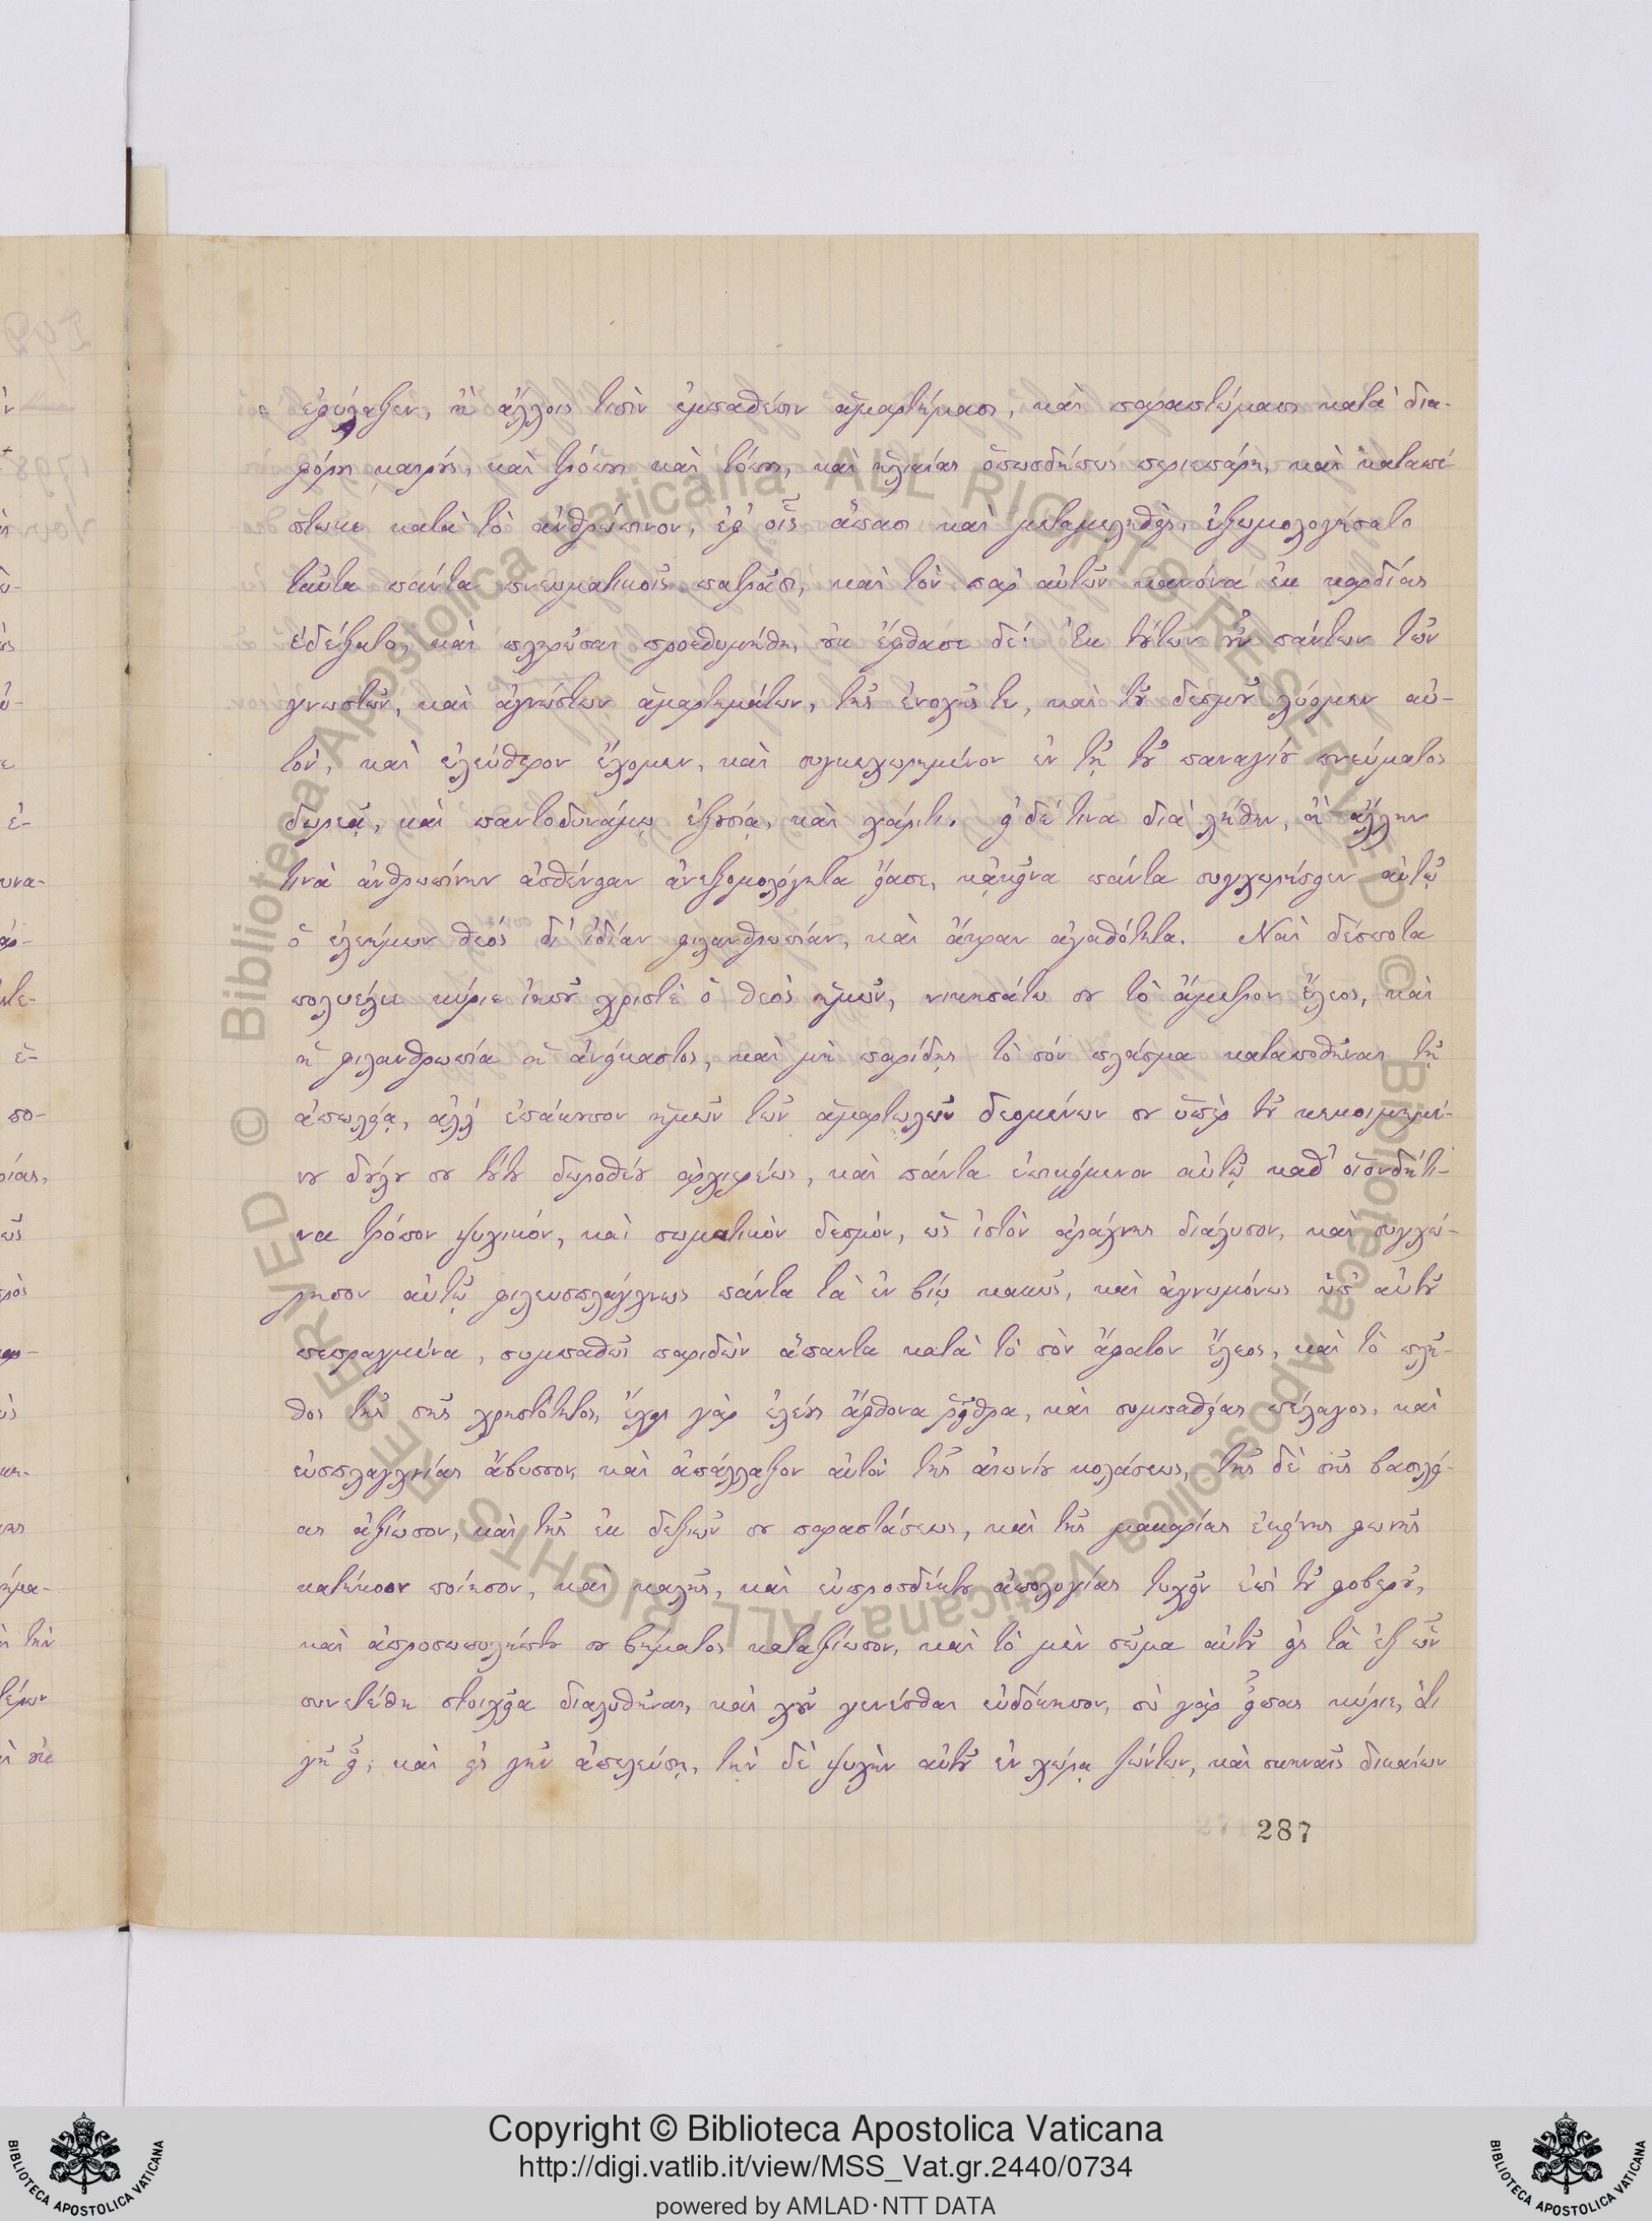 ἐφύλαξεν, ἢ ἄλλοις τισὶν ἐμπαθέσιν ἁμαρτήμασι, καὶ παραπτώμασι κατὰ δια-
φόρους καιροὺς, καὶ τρόπους καὶ τόπους, καὶ ἡλικίας ὁπωσδήποτε περιεπάρη, καὶ καταπέ
πτωκε κατὰ τὸ ἀνθρώπινον, ἐφ' οἷς ἅπασι καὶ μεταμεληθεὶς, ἐξωμολογήσατο
ταῦτα πάντα πνευματικοῖς πατράσι, καὶ τὸν παρ' αὐτῶν κανόνα ἐκ καρδίας
ἐδέξατο, καὶ πληρῶσαι προεθυμήθη, οὐκ ἔφθασε δέ: Ἐκ τούτων οὖν πάντων τῶν
γνωστῶν, καὶ ἀγνώστων ἁμαρτημάτων, τῆς ἐνοχῆς τε, καὶ τοῦ δεσμοῦ λύομεν αὐ-
τὸν, καὶ ἐλεύθερον ἔχομεν, καὶ συγκεχωρημένον ἐν τῇ τοῦ παναγίου πνεύματος
δωρεᾷ, καὶ παντοδυνάμῳ ἐξουσίᾳ, καὶ χάριτι. εἰ δέ τινα διὰ λήθην, ἢ ἄλλην
τινὰ ἀνθρωπίνην ἀσθένειαν ἀνεξομολόγητα εἴασε, κᾀκεῖνα πάντα συγχωρήσειεν αὐτῷ
ὁ ἐλεήμων θεός δι' ἰδίαν φιλανθρωπίαν, καὶ ἄκραν ἀγαθότητα. Ναὶ δέσποτα
πολυέλεε κύριε ἰησοῦ χριστὲ ὁ θεὸς ἡμῶν, νικησάτω σου τὸ ἄμετρον ἔλεος, καὶ
ἡ φιλανθρωπία ἡ ἀνείκαστος, καὶ μὴ παρίδῃς τὸ σόν πλάσμα καταποθῆναι τῇ
ἀπωλείᾳ, ἀλλ' ἐπάκουσον ἡμῶν τῶν ἁμαρτωλῶν δεομένων σου ὑπὲρ τοῦ κεκοιμημέ-
νου δούλου σου τούτου δωροθέου ἀρχιερέως, καὶ πάντα ἐπικείμενον αὐτῷ καθ' οἱονδήτι-
να τρόπον ψυχικόν, καὶ σωματικὸν δεσμόν, ὡς ἱστὸν ἀράχνης διάλυσον, καὶ συγχώ-
ρησον αὐτῷ φιλευσπλάγχνως πάντα τὰ ἐν βίῳ κακῶς, καὶ ἀγνωμόνως ὑπ' αὐτοῦ
πεπραγμένα, συμπαθῶς παριδὼν ἅπαντα κατὰ τὸ σὸν ἄφατον ἔλεος, καὶ τὸ πλῆ-
θος τῆς σῆς χρηστότητος, ἔχει γὰρ ἐλέους ἄφθονα ῥεῖθρα, καὶ συμπαθείας πέλαγος, καὶ
εὐσπλαγχνίας ἄβυσσον, καὶ ἀπάλλαξον αὐτὸν τῆς αἰωνίου κολάσεως, τῆς δὲ σῆς βασιλεί-
ας ἀξίωσον, καὶ τῆς ἐκ δεξιῶν σου παραστάσεως, καὶ τῆς μακαρίας ἐκείνης φωνῆς
κατήκοον ποίησον, καὶ καλῆς, καὶ εὐπροσδέκτου ἀπολογίας τυχεῖν ἐπὶ τοῦ φοβεροῦ,
καὶ ἀπροσωπολήπτου σου βήματος καταξίωσον, καὶ τὸ μὲν σῶμα αὐτοῦ εἰς τὰ ἐξ ὧν
συνετέθη στοιχεῖα διαλυθῆναι, καὶ χοῦν γενέσθαι εὐδόκησον, σὺ γὰρ εἶπας κύριε, ὅτι
γῆ εἶ, καὶ εἰς γῆν ἀπελεύσῃ, τὴν δὲ ψυχὴν αὐτοῦ ἐν χώρᾳ ζώντων, καὶ σκηναῖς δικαίων
287
© Biblioteca Apostolica Vaticana ALL RIGHTS RESERVED © Biblioteca Apostolica Vaticana ALL RIGHTS RESERVED
Copyright © Biblioteca Apostolica Vaticana
http://digi.vatlib.it/view/MSS_Vat.gr.2440/0734
powered by AMLAD·NTT DATA
BIBLIOTECA APOSTOLICA VATICANA
BIBLIOTECA APOSTOLICA VATICANA